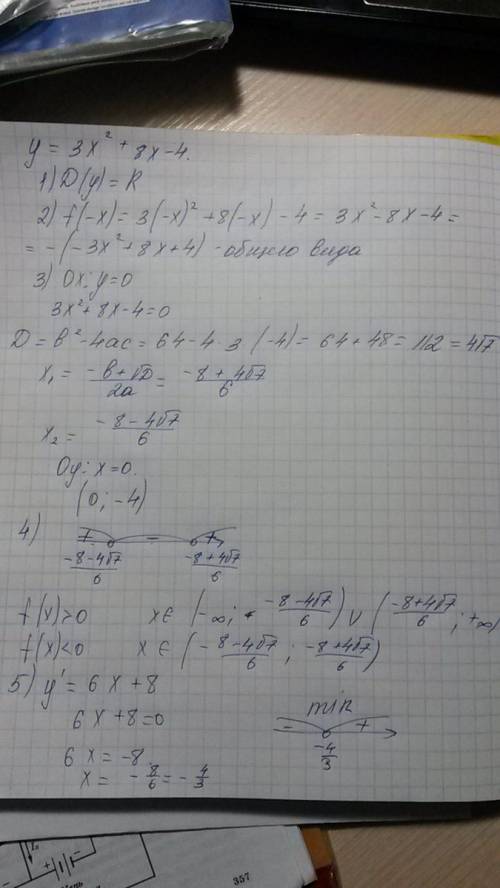 y = 3x² + 8x - 4.
1) D(y) = R
2) f(-x) = 3(-x)² + 8(-x) - 4 = 3x² - 8x - 4 =
= -(-3x² + 8x + 4) - общего вида
3) Ox: y = 0
3x² + 8x - 4 = 0
D = b² - 4ac = 64 - 4·3·(-4) = 64 + 48 = 112 = 4√7
x₁ = (-b + √D)/2a = (-8 + 4√7)/6
x₂ = (-8 - 4√7)/6
Oy: x = 0.
(0; -4)
4) + - +
(-8 - 4√7)/6 (-8 + 4√7)/6
f(x) > 0 x ∈ (-∞; (-8 - 4√7)/6) ∪ ((-8 + 4√7)/6; +∞)
f(x) < 0 x ∈ ((-8 - 4√7)/6; (-8 + 4√7)/6)
5) y' = 6x + 8
6x + 8 = 0
6x = -8
x = -8/6 = -4/3
min
- +
-4/3
357